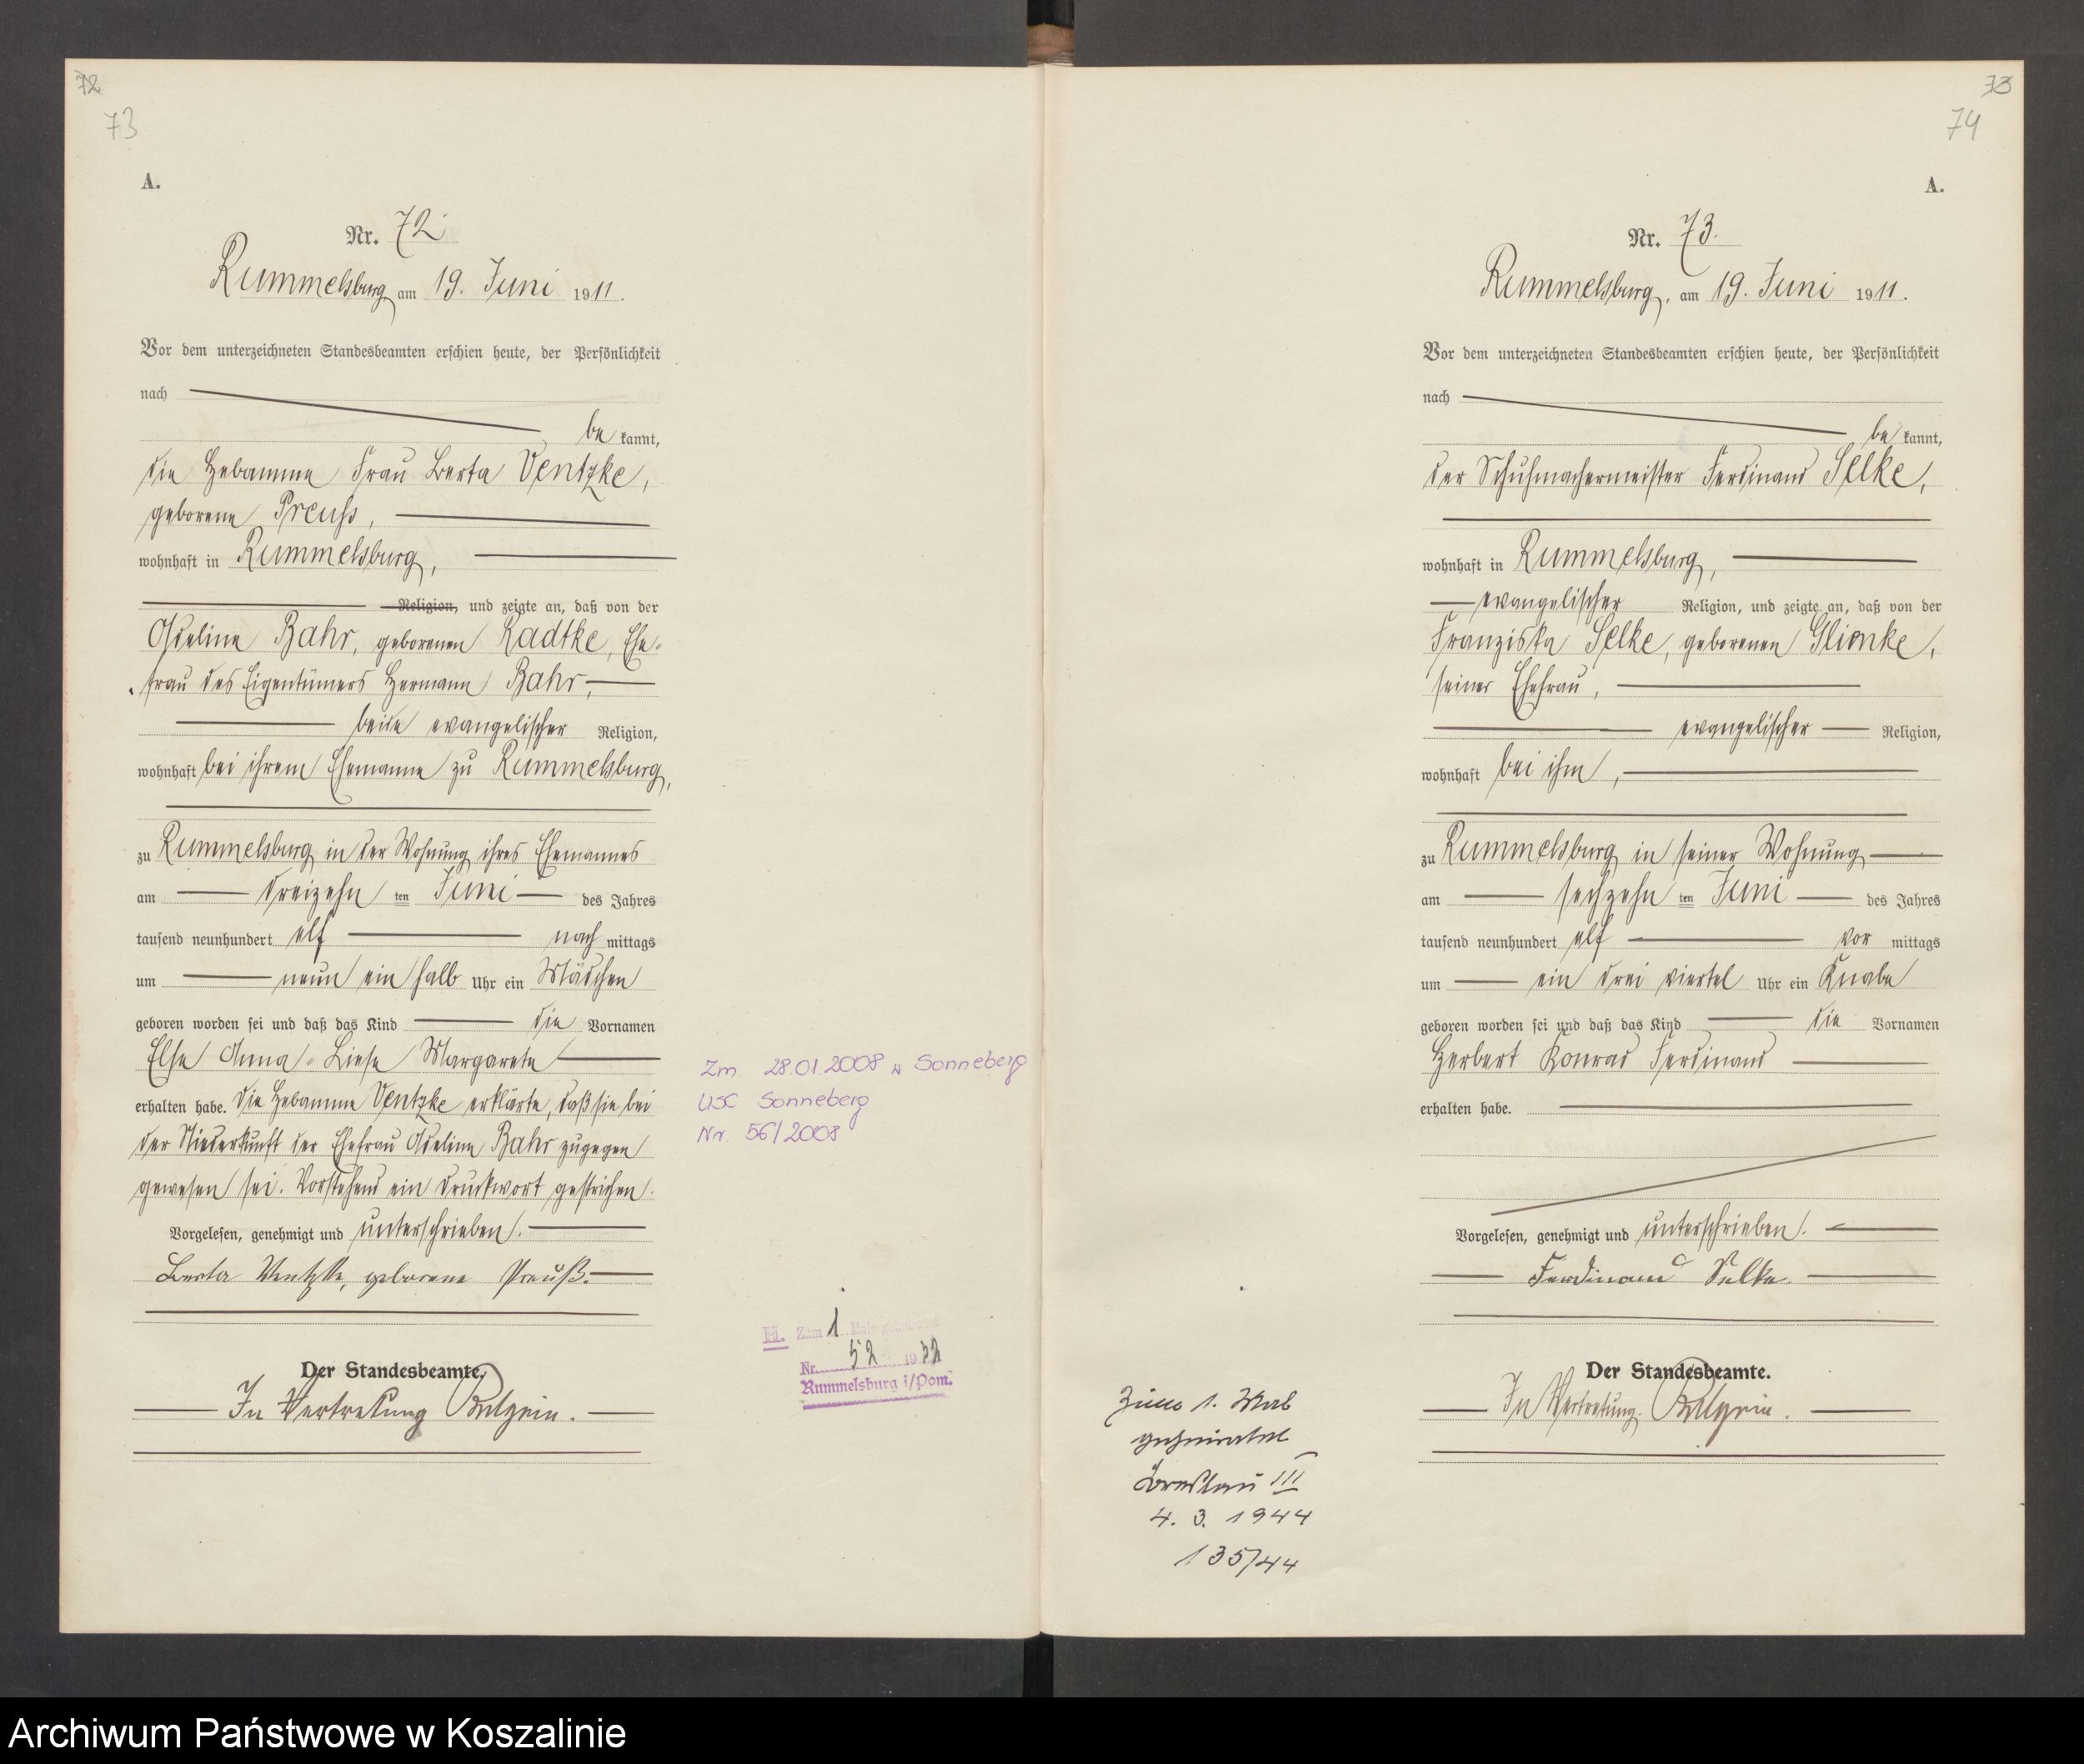 72
73
A.
Nr. 72.
Rummelsburg, am 19. Juni 1911.
Vor dem unterzeichneten Standesbeamten erschien heute, der Persönlichkeit
nach
be kannt,
die Hebamme Frau Berta Ventzke,
geborene Preuss,
wohnhaft in Rummelsburg,
Religion, und zeigte an, daß von der
Adeline Bahr, geborenen Radtke, Ehe-
frau des Eigentümers Hermann Bahr,
beide evangelischer Religion,
wohnhaft bei ihrem Ehemanne zu Rummelsburg,
zu Rummelsburg in der Wohnung ihres Ehemannes
am dreizehn ten Juni des Jahres
tausend neunhundert elf nach mittags
um neun ein halb Uhr ein Mädchen
geboren worden sei und daß das Kind die Vornamen
Else Anna-Liese Margarete
erhalten habe. Die Hebamme Ventzke erklärte, daß sie bei
der Niederkunft der Ehefrau Adeline Bahr zugegen
gewesen sei. Vorstehend ein Druckwort gestrichen.
Vorgelesen, genehmigt und unterschrieben.
Berta Ventzke, geborene Preuß.
Der Standesbeamte.
In Vertretung
Zm. 28.01.2008 w Sonneberg
USC Sonneberg
Nr. 56/2008
H. Zum 1 Male geheiratet
Nr. 52 1932
Rummelsburg i/Pom.
73
74
A.
Nr. 73.
Rummelsburg, am 19. Juni 1911.
Vor dem unterzeichneten Standesbeamten erschien heute, der Persönlichkeit
nach
be kannt,
der Schuhmachermeister Ferdinand Selke,
wohnhaft in Rummelsburg,
evangelischer Religion, und zeigte an, daß von der
Franziska Selke, geborenen Glienke,
seiner Ehefrau,
evangelischer Religion,
wohnhaft bei ihm,
zu Rummelsburg in seiner Wohnung
am sechzehn ten Juni des Jahres
tausend neunhundert elf vor mittags
um ein drei viertel Uhr ein Knabe
geboren worden sei und daß das Kind die Vornamen
Herbert Konrad Ferdinand
erhalten habe.
Vorgelesen, genehmigt und unterschrieben.
Ferdinand Selke.
Der Standesbeamte.
In Vertretung.
Zum 1. Mal
geheiratet
Breslau III
4. 3. 1944
135/44
Archiwum Państwowe w Koszalinie